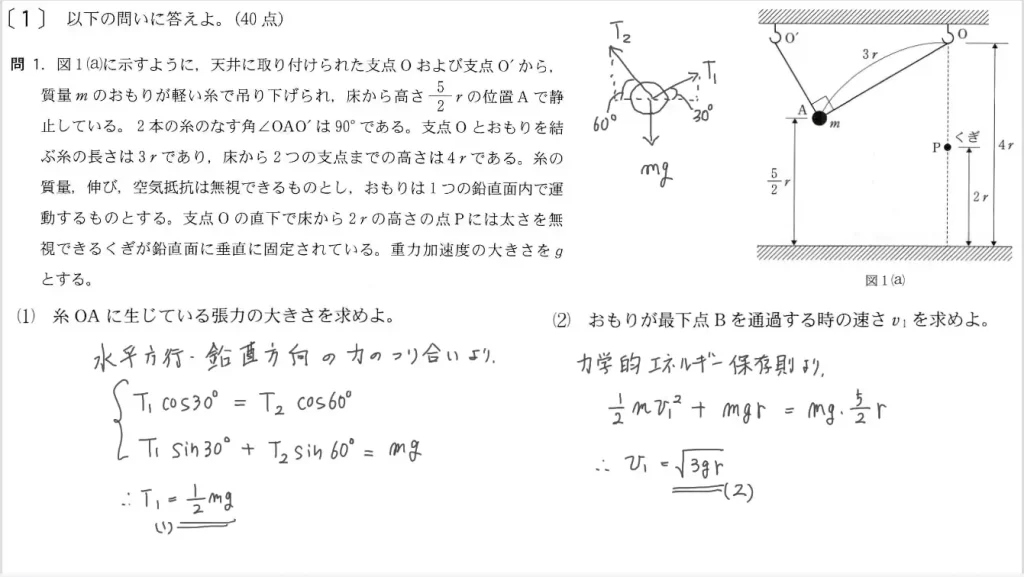 〔1〕 以下の問いに答えよ。(40点)
問 1. 図1(a)に示すように，天井に取り付けられた支点Oおよび支点O′から，
質量mのおもりが軽い糸で吊り下げられ，床から高さ5/2 rの位置Aで静
止している。2本の糸のなす角∠OAO′は90°である。支点Oとおもりを結
ぶ糸の長さは3rであり，床から2つの支点までの高さは4rである。糸の
質量，伸び，空気抵抗は無視できるものとし，おもりは1つの鉛直面内で運
動するものとする。支点Oの直下で床から2rの高さの点Pには太さを無
視できるくぎが鉛直面に垂直に固定されている。重力加速度の大きさをg
とする。
T₂
T₁
60°
30°
mg
O′
O
3r
A
m
くぎ
P
4r
5/2 r
2r
図1(a)
(1) 糸OAに生じている張力の大きさを求めよ。
水平方行・鉛直方向の力のつり合いより，
T₁ cos30° = T₂ cos60°
T₁ sin30° + T₂ sin60° = mg
∴ T₁ = 1/2 mg
(1)
(2) おもりが最下点Bを通過する時の速さv₁を求めよ。
力学的エネルギー保存則より，
1/2 mv₁² + mgr = mg・5/2 r
∴ v₁ = √3gr
(2)